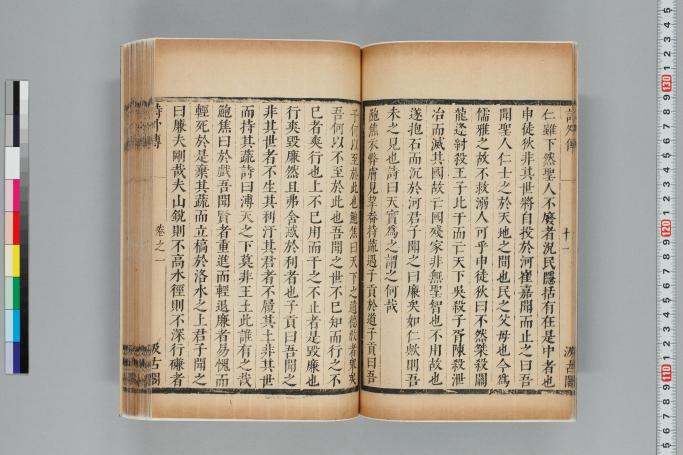 仁雖下然聖人不廢者況民隱括有在是中者也
申徒狄非其世將自投於河崔嘉聞而止之曰吾
聞聖人仁士之於天地之間也民之父母也今爲
儒雅之故不救溺人可乎申徒狄曰不然桀殺關
龍逄紂殺王子比干而亡天下吳殺子胥陳殺泄
冶而滅其國故亡國殘家非無聖智也不用故也
遂抱石而沉於河君子聞之曰廉矣如仁歟則吾
未之見也詩曰天實爲之謂之何哉
鮑焦衣弊膚見挈畚持蔬遇子貢於道子貢曰吾
子何以至於此也鮑焦曰天下之遺德教者衆矣
吾何以不至於此也吾聞之世不已知而行之不
已者爽行也上不已用而干之不止者是毀廉也
行爽毀廉然且弗舍惑於利者也子貢曰吾聞之
非其世者不生其利汙其君者不履其土非其世
而持其蔬詩曰溥天之下莫非王土此誰有之哉
鮑焦曰於戲吾聞賢者重進而輕退廉者易愧而
輕死於是棄其蔬而立槁於洛水之上君子聞之
曰廉夫剛哉夫山銳則不高水徑則不深行磏者
詩外傳
卷之一
汲古閣